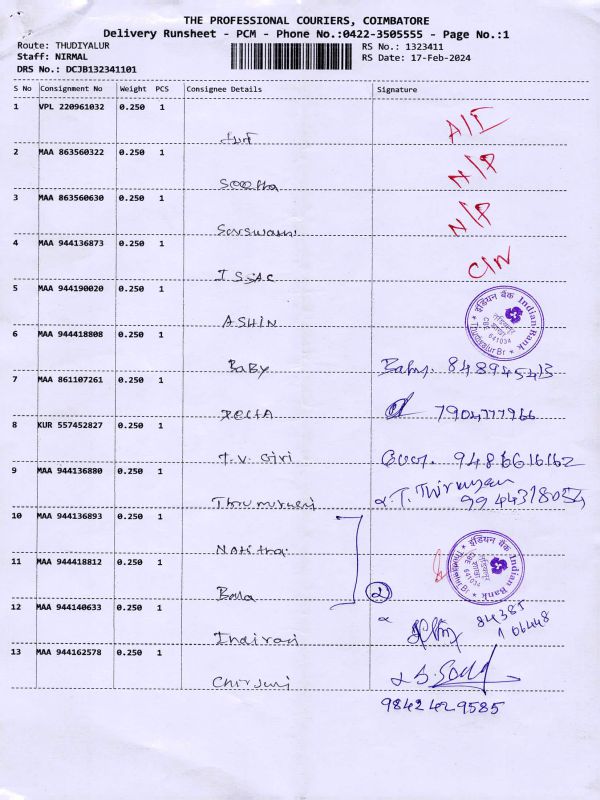 THE PROFESSIONAL COURIERS, COIMBATORE
Delivery Runsheet - PCM - Phone No.:0422-3505555 - Page No.:1
Route: THUDIYALUR
RS No.: 1323411
Staff: NIRMAL
RS Date: 17-Feb-2024
DRS No.: DCJB132341101
S No Consignment No Weight PCS Consignee Details Signature
1 VPL 220961032 0.250 1
A/I
2 MAA 863560322 0.250 1
Sootha N/A
3 MAA 863560630 0.250 1
N/A
4 MAA 944136873 0.250 1
ISSAC C/N
5 MAA 944190020 0.250 1
ASHIN
इंडियन बैंक Indian Bank
CBE 641034
Thudiyalur Br
6 MAA 944418808 0.250 1
BABY Baby. 8489145413
7 MAA 861107261 0.250 1
7904777966
8 KUR 557452827 0.250 1
T.V. Giri 9486616162
9 MAA 944136880 0.250 1
T. Thirumyan
9944318054
10 MAA 944136893 0.250 1
इंडियन बैंक Indian Bank
CBE 641034
Thudiyalur Br
11 MAA 944418812 0.250 1
Bala 2
12 MAA 944140633 0.250 1
84385
106448
13 MAA 944162578 0.250 1
9842429585